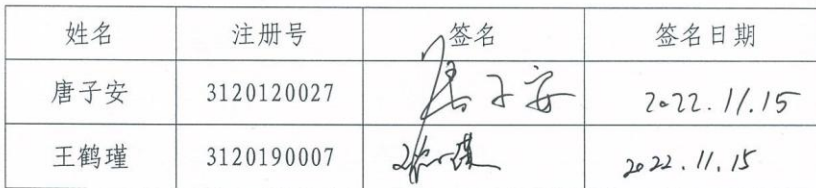 姓名 注册号 签名 签名日期
唐子安 3120120027 唐子安 2022.11.15
王鹤瑾 3120190007 王鹤瑾 2022.11.15